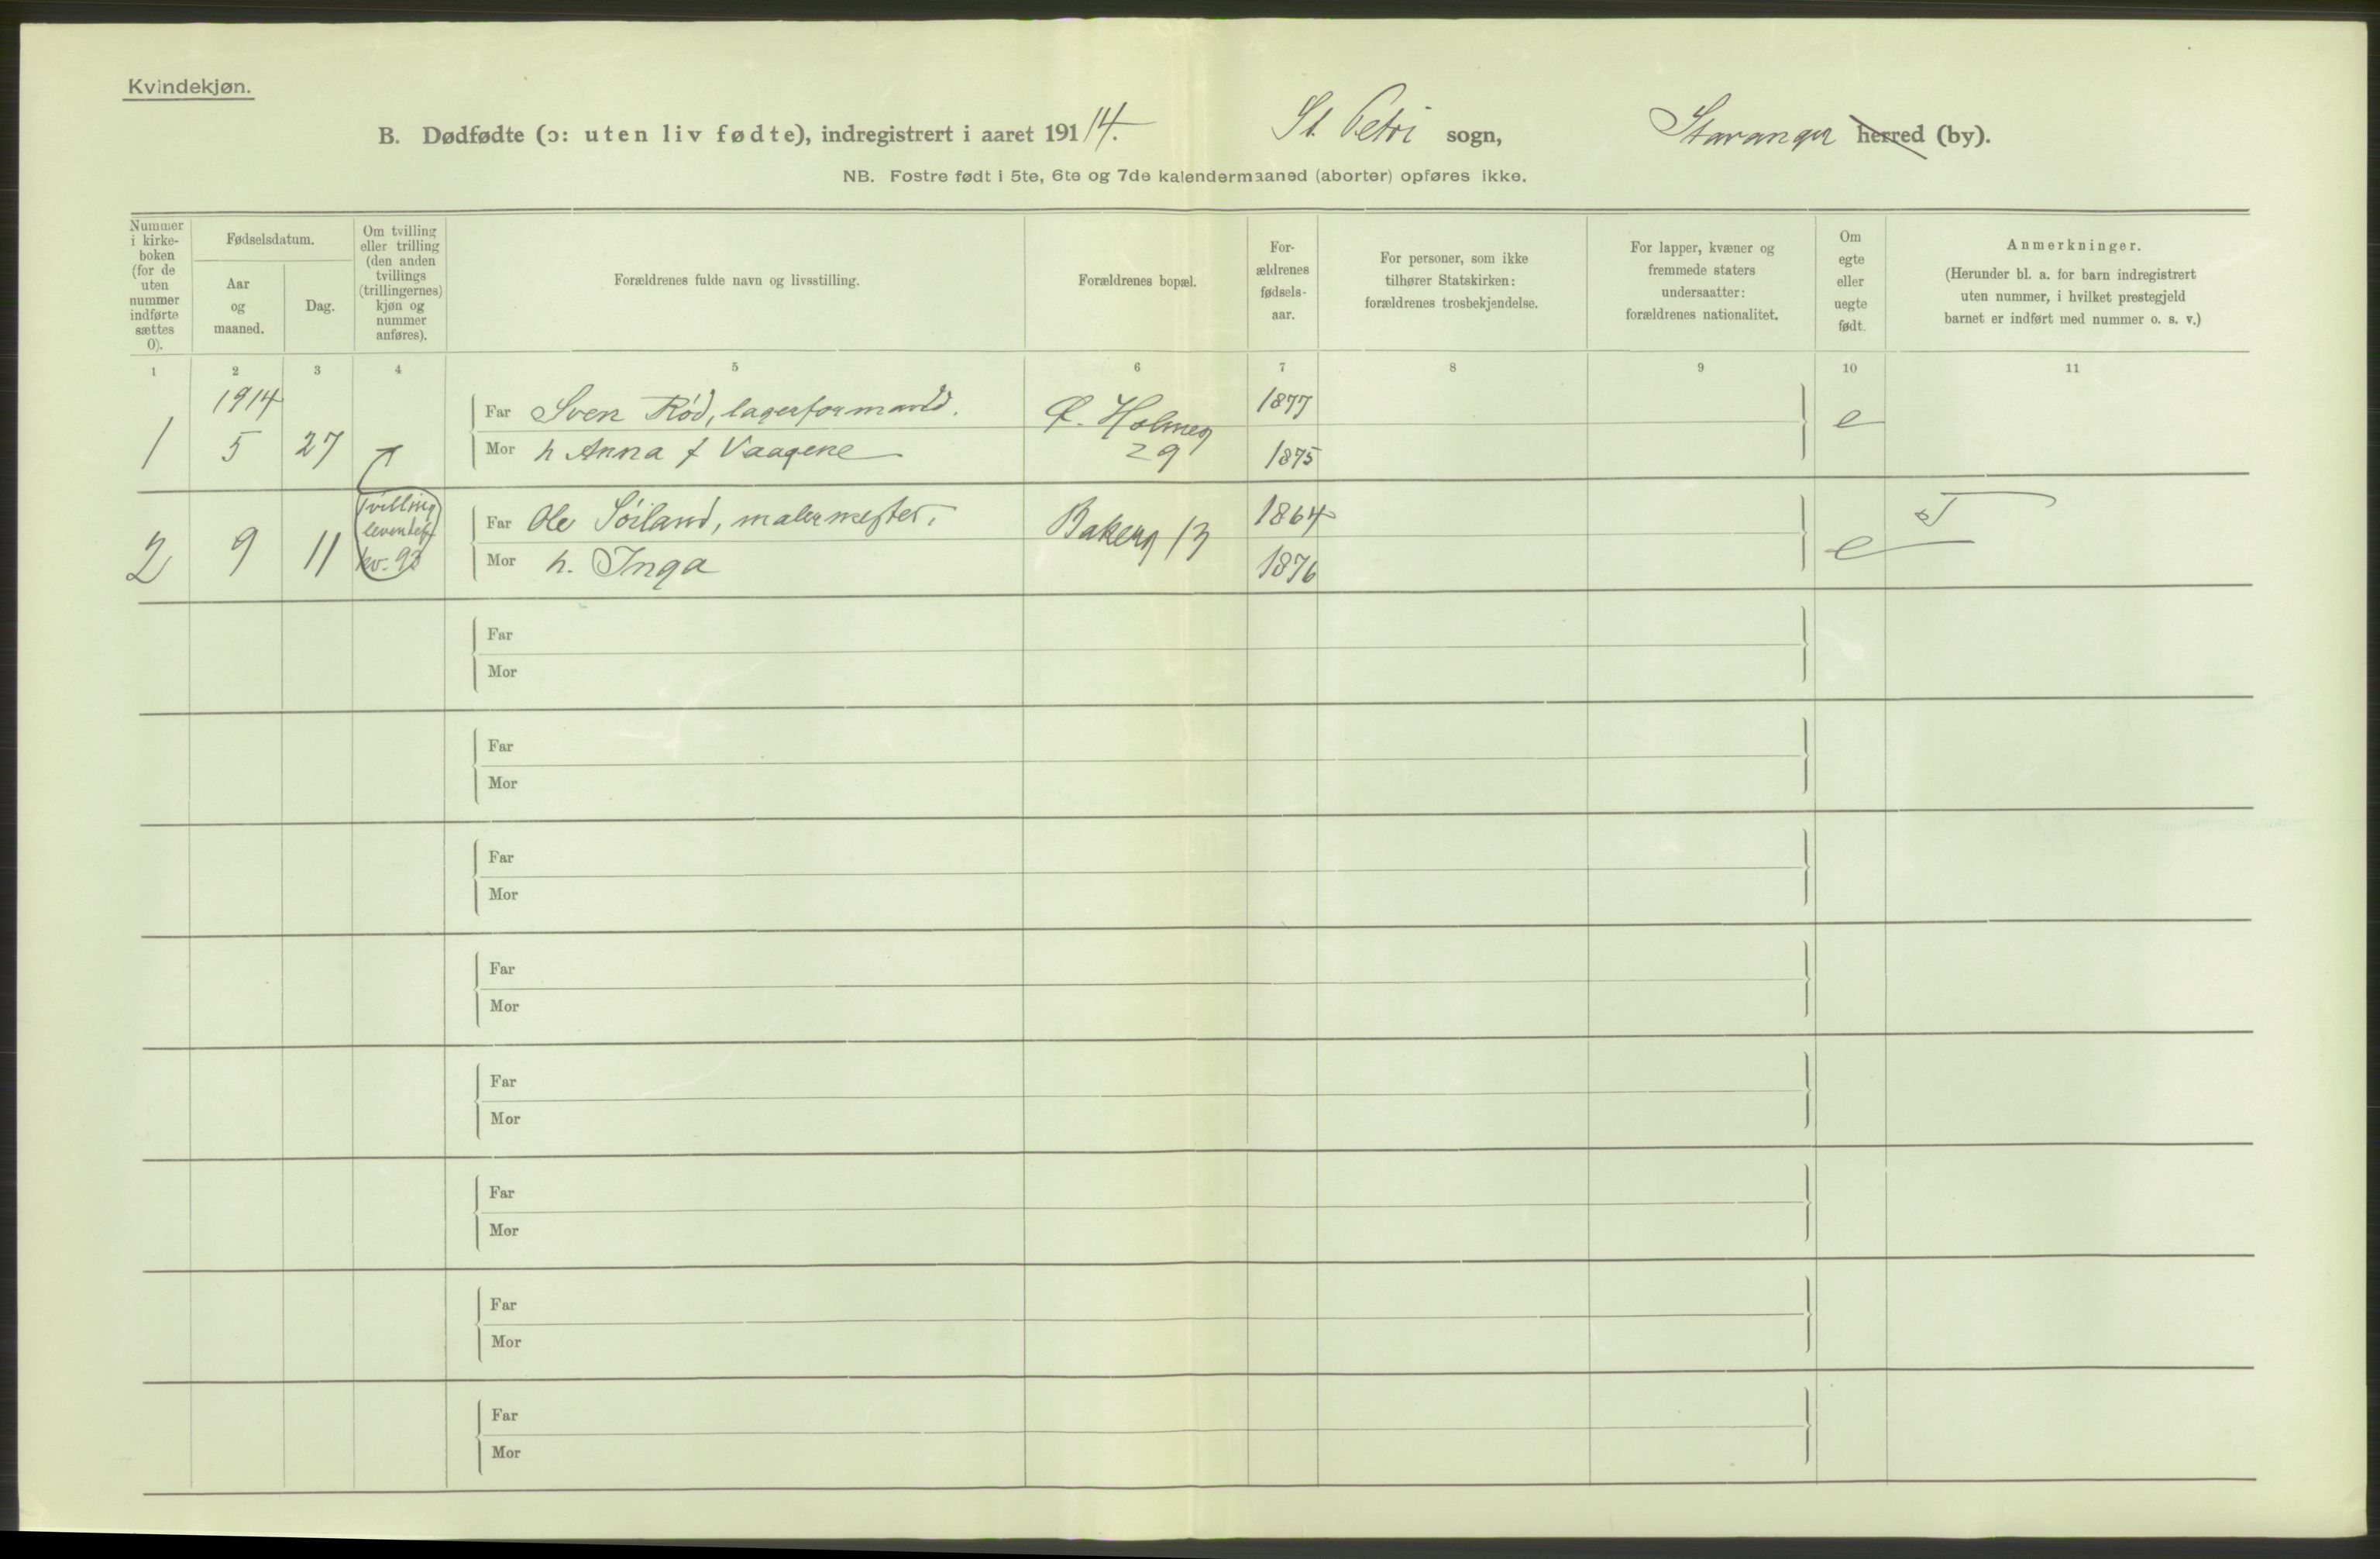 Kvindekjøn.
B. Dødfødte (ɔ: uten liv fødte), indregistrert i aaret 191 14. St. Petri sogn, Stavanger herred (by).
NB. Fostre født i 5te, 6te og 7de kalendermaaned (aborter) opføres ikke.
Nummer
i kirke-
boken
(for de
uten
nummer
indførte
sættes
0).
Fødselsdatum.
Aar
og
maaned.
Dag.
Om tvilling
eller trilling
(den anden
tvillings
(trillingernes)
kjøn og
nummer
anføres).
Forældrenes fulde navn og livsstilling.
Forældrenes bopæl.
For-
ældrenes
fødsels-
aar.
For personer, som ikke
tilhører Statskirken:
forældrenes trosbekjendelse.
For lapper, kvæner og
fremmede staters
undersaatter:
forældrenes nationalitet.
Om
egte
eller
uegte
født.
Anmerkninger.
(Herunder bl. a. for barn indregistrert
uten nummer, i hvilket prestegjeld
barnet er indført med nummer o. s. v.)
1 2 3 4 5 6 7 8 9 10 11
1914
1 5 27
Far Sven Rød, lagerformand.
Mor h Anna f Vaagene
Ø. Holmeg
29
1877
1875
e
2 9 11
Tvilling
levendef
kv. 93
Far Ole Søiland, malermester.
Mor h. Inga
Bakerg 13
1864
1876
e
Far
Mor
Far
Mor
Far
Mor
Far
Mor
Far
Mor
Far
Mor
Far
Mor
Far
Mor